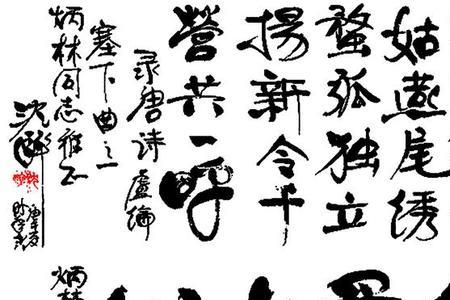 姑燕尾绣
蝥弧独立
揚新令千
營共一呼
录唐诗盧綸
塞下曲之一
炳林同志雅正
沈醉
炳林